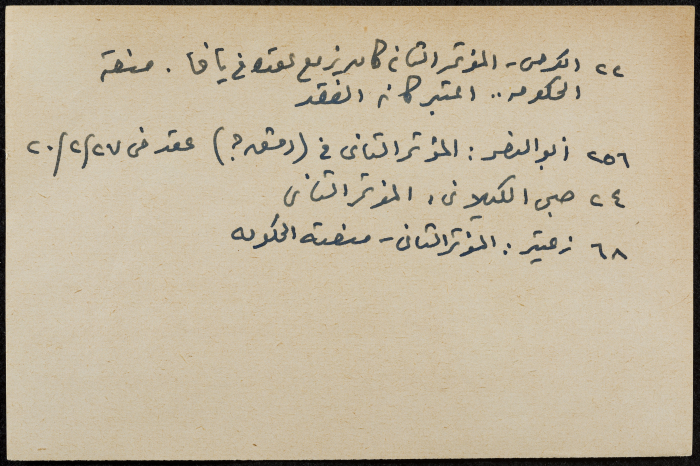 ٢٢ الكرمى - المؤتمر الثاني كان يزمع عقده في يافا . منعته
الحكومه .. اعتبر كأنه انعقد
٢٥٦ أبو النصر : المؤتمر الثاني في (دمشق ؟) عقد في ٢٠/٢/٢٧
٢٤ صبحي الكيلاني ، المؤتمر الثاني
٦٨ زعيتر : المؤتمر الثاني - منعته الحكومه